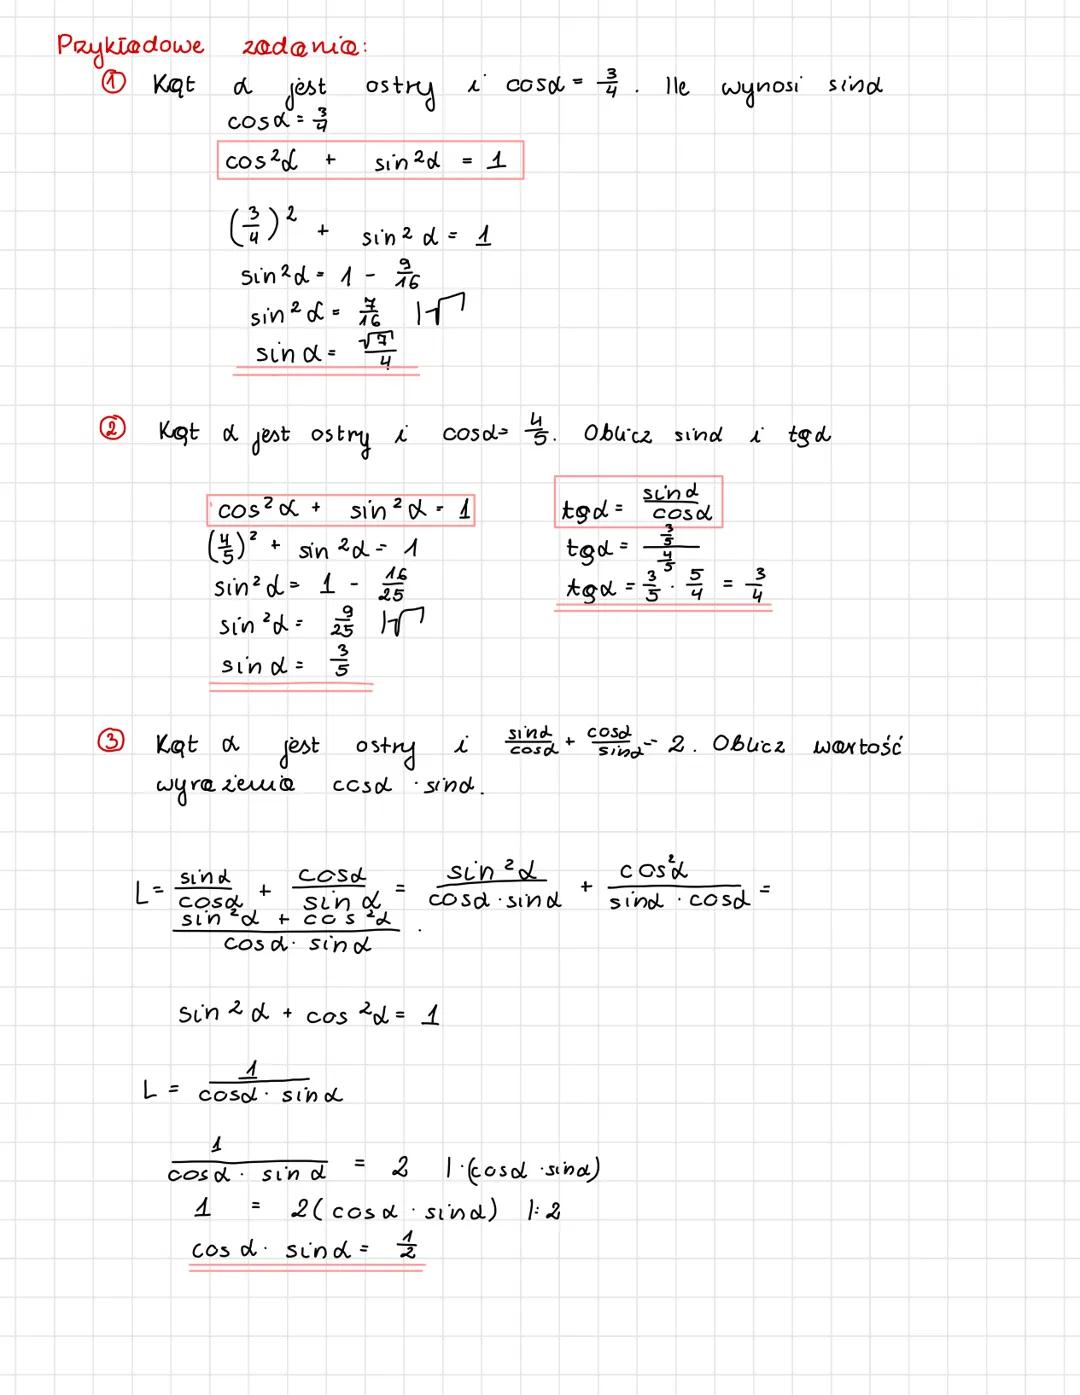 Przykładowe zadania:
① Kąt α jest ostry i cosα = 3/4. Ile wynosi sinα
cosα = 3/4
cos²α + sin²α = 1
(3/4)² + sin²α = 1
sin²α = 1 - 9/16
sin²α = 7/16 |√
sinα = √7/4
② Kąt α jest ostry i cosα = 4/5. Oblicz sinα i tgα
cos²α + sin²α = 1
(4/5)² + sin²α = 1
sin²α = 1 - 16/25
sin²α = 9/25 |√
sinα = 3/5
tgα = sinα/cosα
tgα = (3/5)/(4/5)
tgα = 3/5 · 5/4 = 3/4
③ Kąt α jest ostry i sinα/cosα + cosα/sinα = 2. Oblicz wartość
wyrażenia cosα · sinα.
L = sinα/cosα + cosα/sinα = sin²α/(cosα · sinα) + cos²α/(sinα · cosα) =
(sin²α + cos²α)/(cosα · sinα) .
sin²α + cos²α = 1
L = 1/(cosα · sinα)
1/(cosα · sinα) = 2 |·(cosα · sinα)
1 = 2(cosα · sinα) |:2
cosα · sinα = 1/2